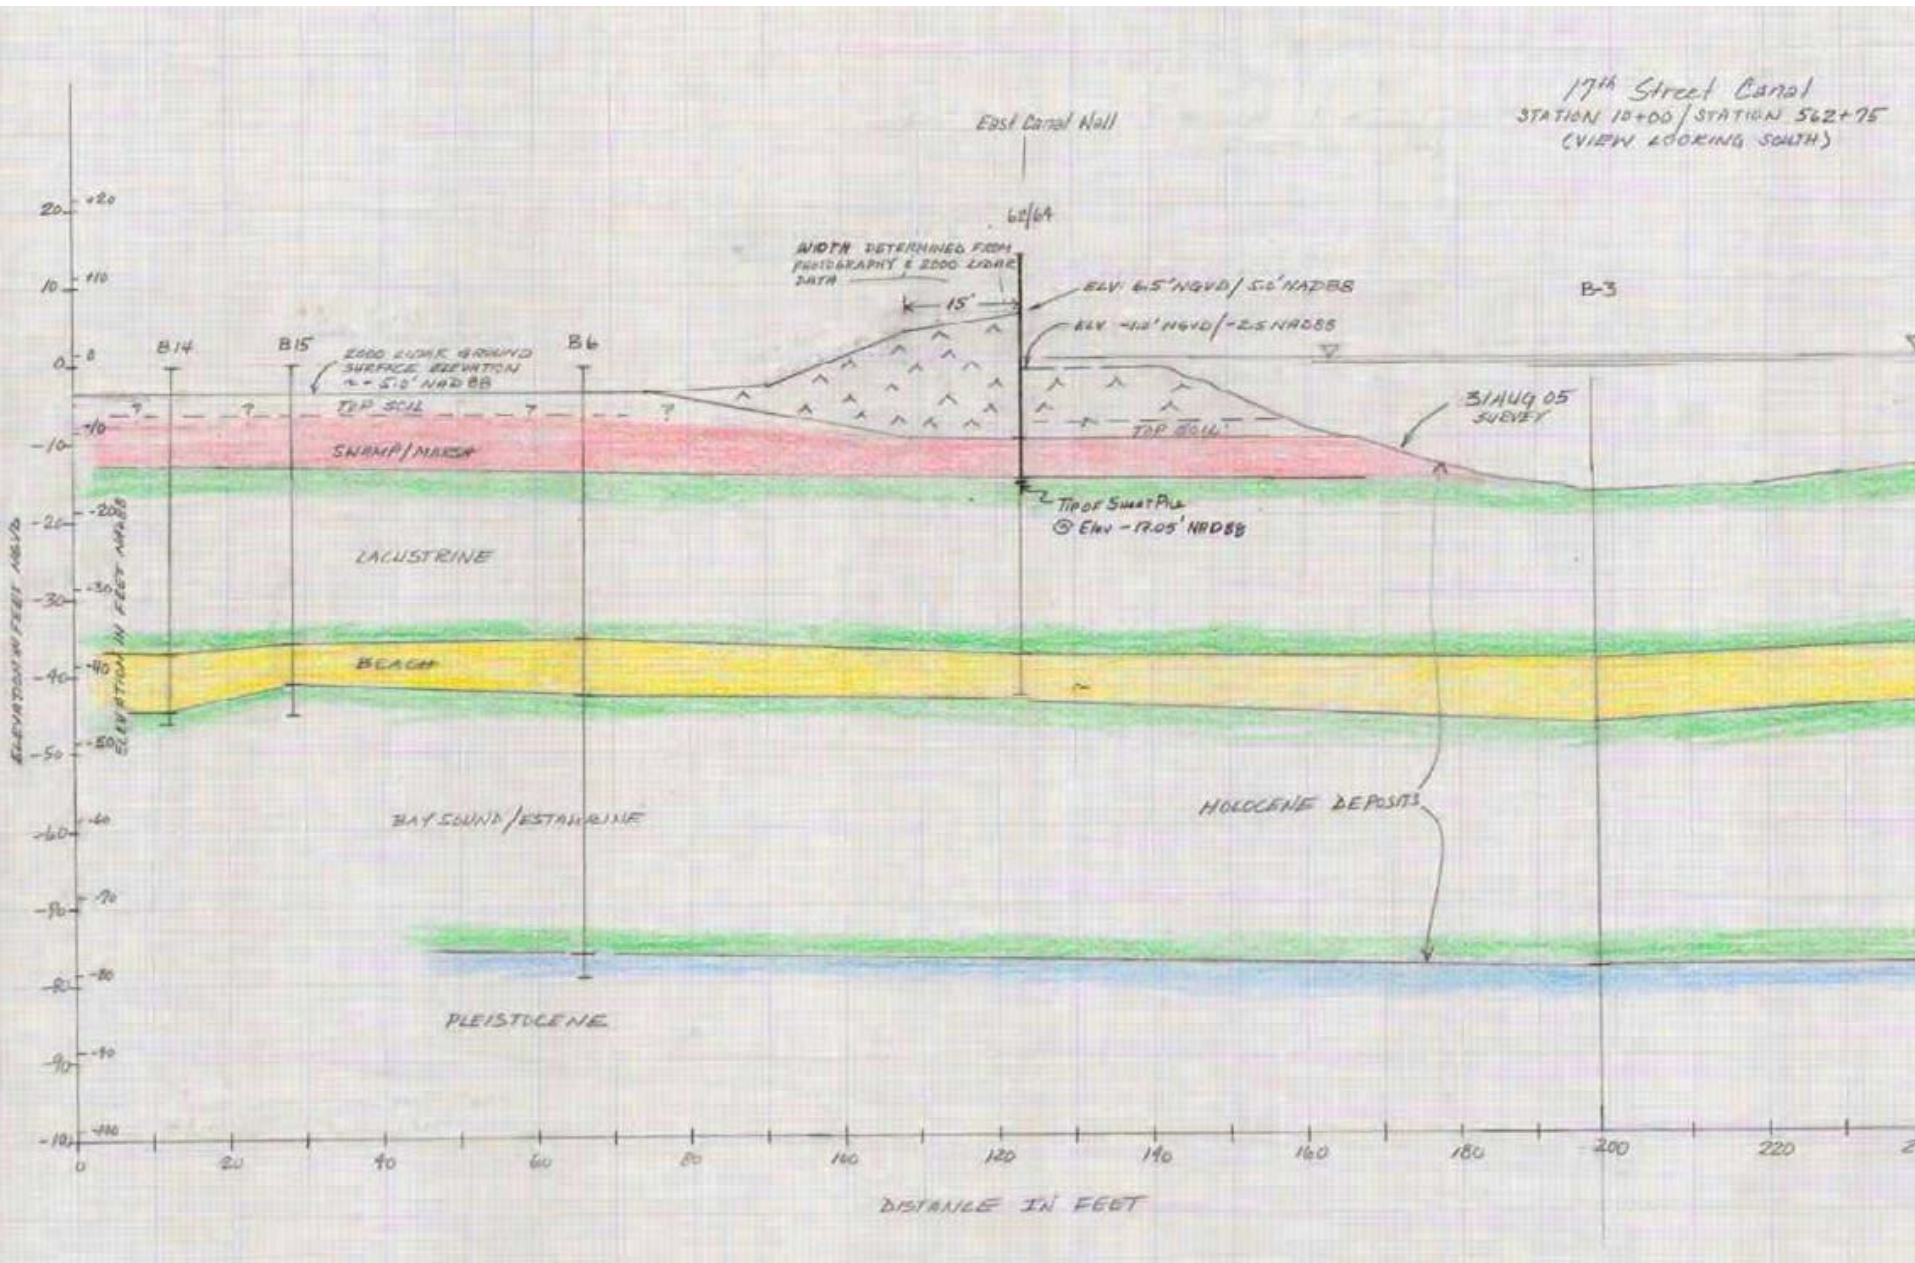 17th Street Canal
STATION 10+00/STATION 562+75
(VIEW LOOKING SOUTH)
East Canal Wall
62/64
WIDTH DETERMINED FROM
PHOTOGRAPHY & 2000 LIDAR
DATA
15'
ELV: 6.5' NGVD/5.0' NAD88
ELV -1.0' NGVD/-2.5 NAD88
B-3
B14
B15
B6
2000 LIDAR GROUND
SURFACE ELEVATION
~ - 5.0' NAD 88
? ? ? ?
TOP SOIL
TOP SOIL
31 AUG 05
SURVEY
SWAMP/MARSH
TIP OF SHEET PILE
@ Elev -17.05' NAD88
LACUSTRINE
BEACH
~
HOLOCENE DEPOSITS
BAY SOUND/ESTAURINE
PLEISTOCENE
ELEVATION IN FEET NGVD
20
10
0
-10
-20
-30
-40
-50
-60
-80
-90
ELEVATION IN FEET NAD88
+20
+10
0
-10
-20
-30
-40
-50
-60
-70
-80
-90
-100
0 20 40 60 80 100 120 140 160 180 200 220
DISTANCE IN FEET